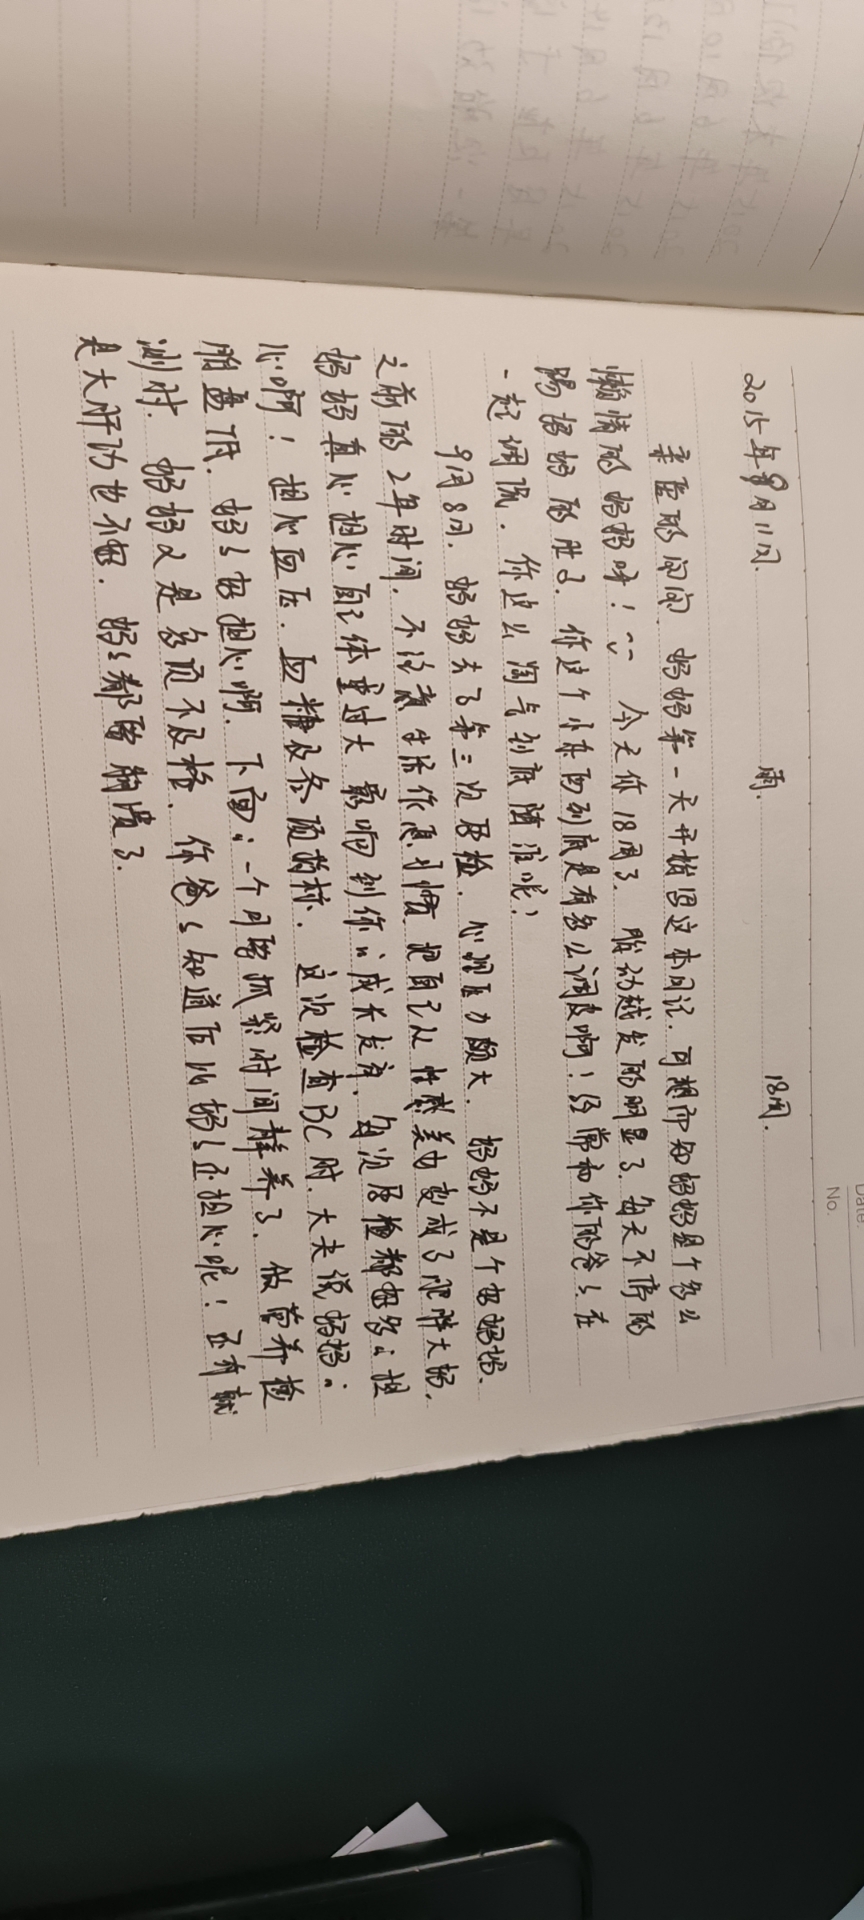 Date.
No.
2015年9月11日. 雨. 18周.
亲爱的闹闹, 妈妈第一天开始写这本日记. 可想而知妈妈是个多么
懒惰的妈妈呀! 今天你18周了. 胎动越发的明显了. 每天不停的
踢妈妈的肚子. 你这个小东西到底是有多么调皮啊! 经常和你的爸爸在
一起调侃. 你这么淘气到底随谁呢?
9月8日. 妈妈去了第三次产检. 心理压力颇大. 妈妈不是个好妈妈.
之前的2年时间, 不注意生活作息习惯, 把自己从性感美女变成了肥胖大妈.
妈妈真心担心自己体重过大. 影响到你的成长发育. 每次产检都好多的担
心啊! 担心血压. 血糖及各项指标. 这次检查BC时. 大夫说妈妈的
胎盘低. 妈妈好担心啊. 下面的一个月要抓紧时间静养了. 做营养检
测时. 妈妈又是多项不及格. 你爸爸知道后比妈妈还担心呢! 还有就
是大肝功也不好. 妈妈都要崩溃了.